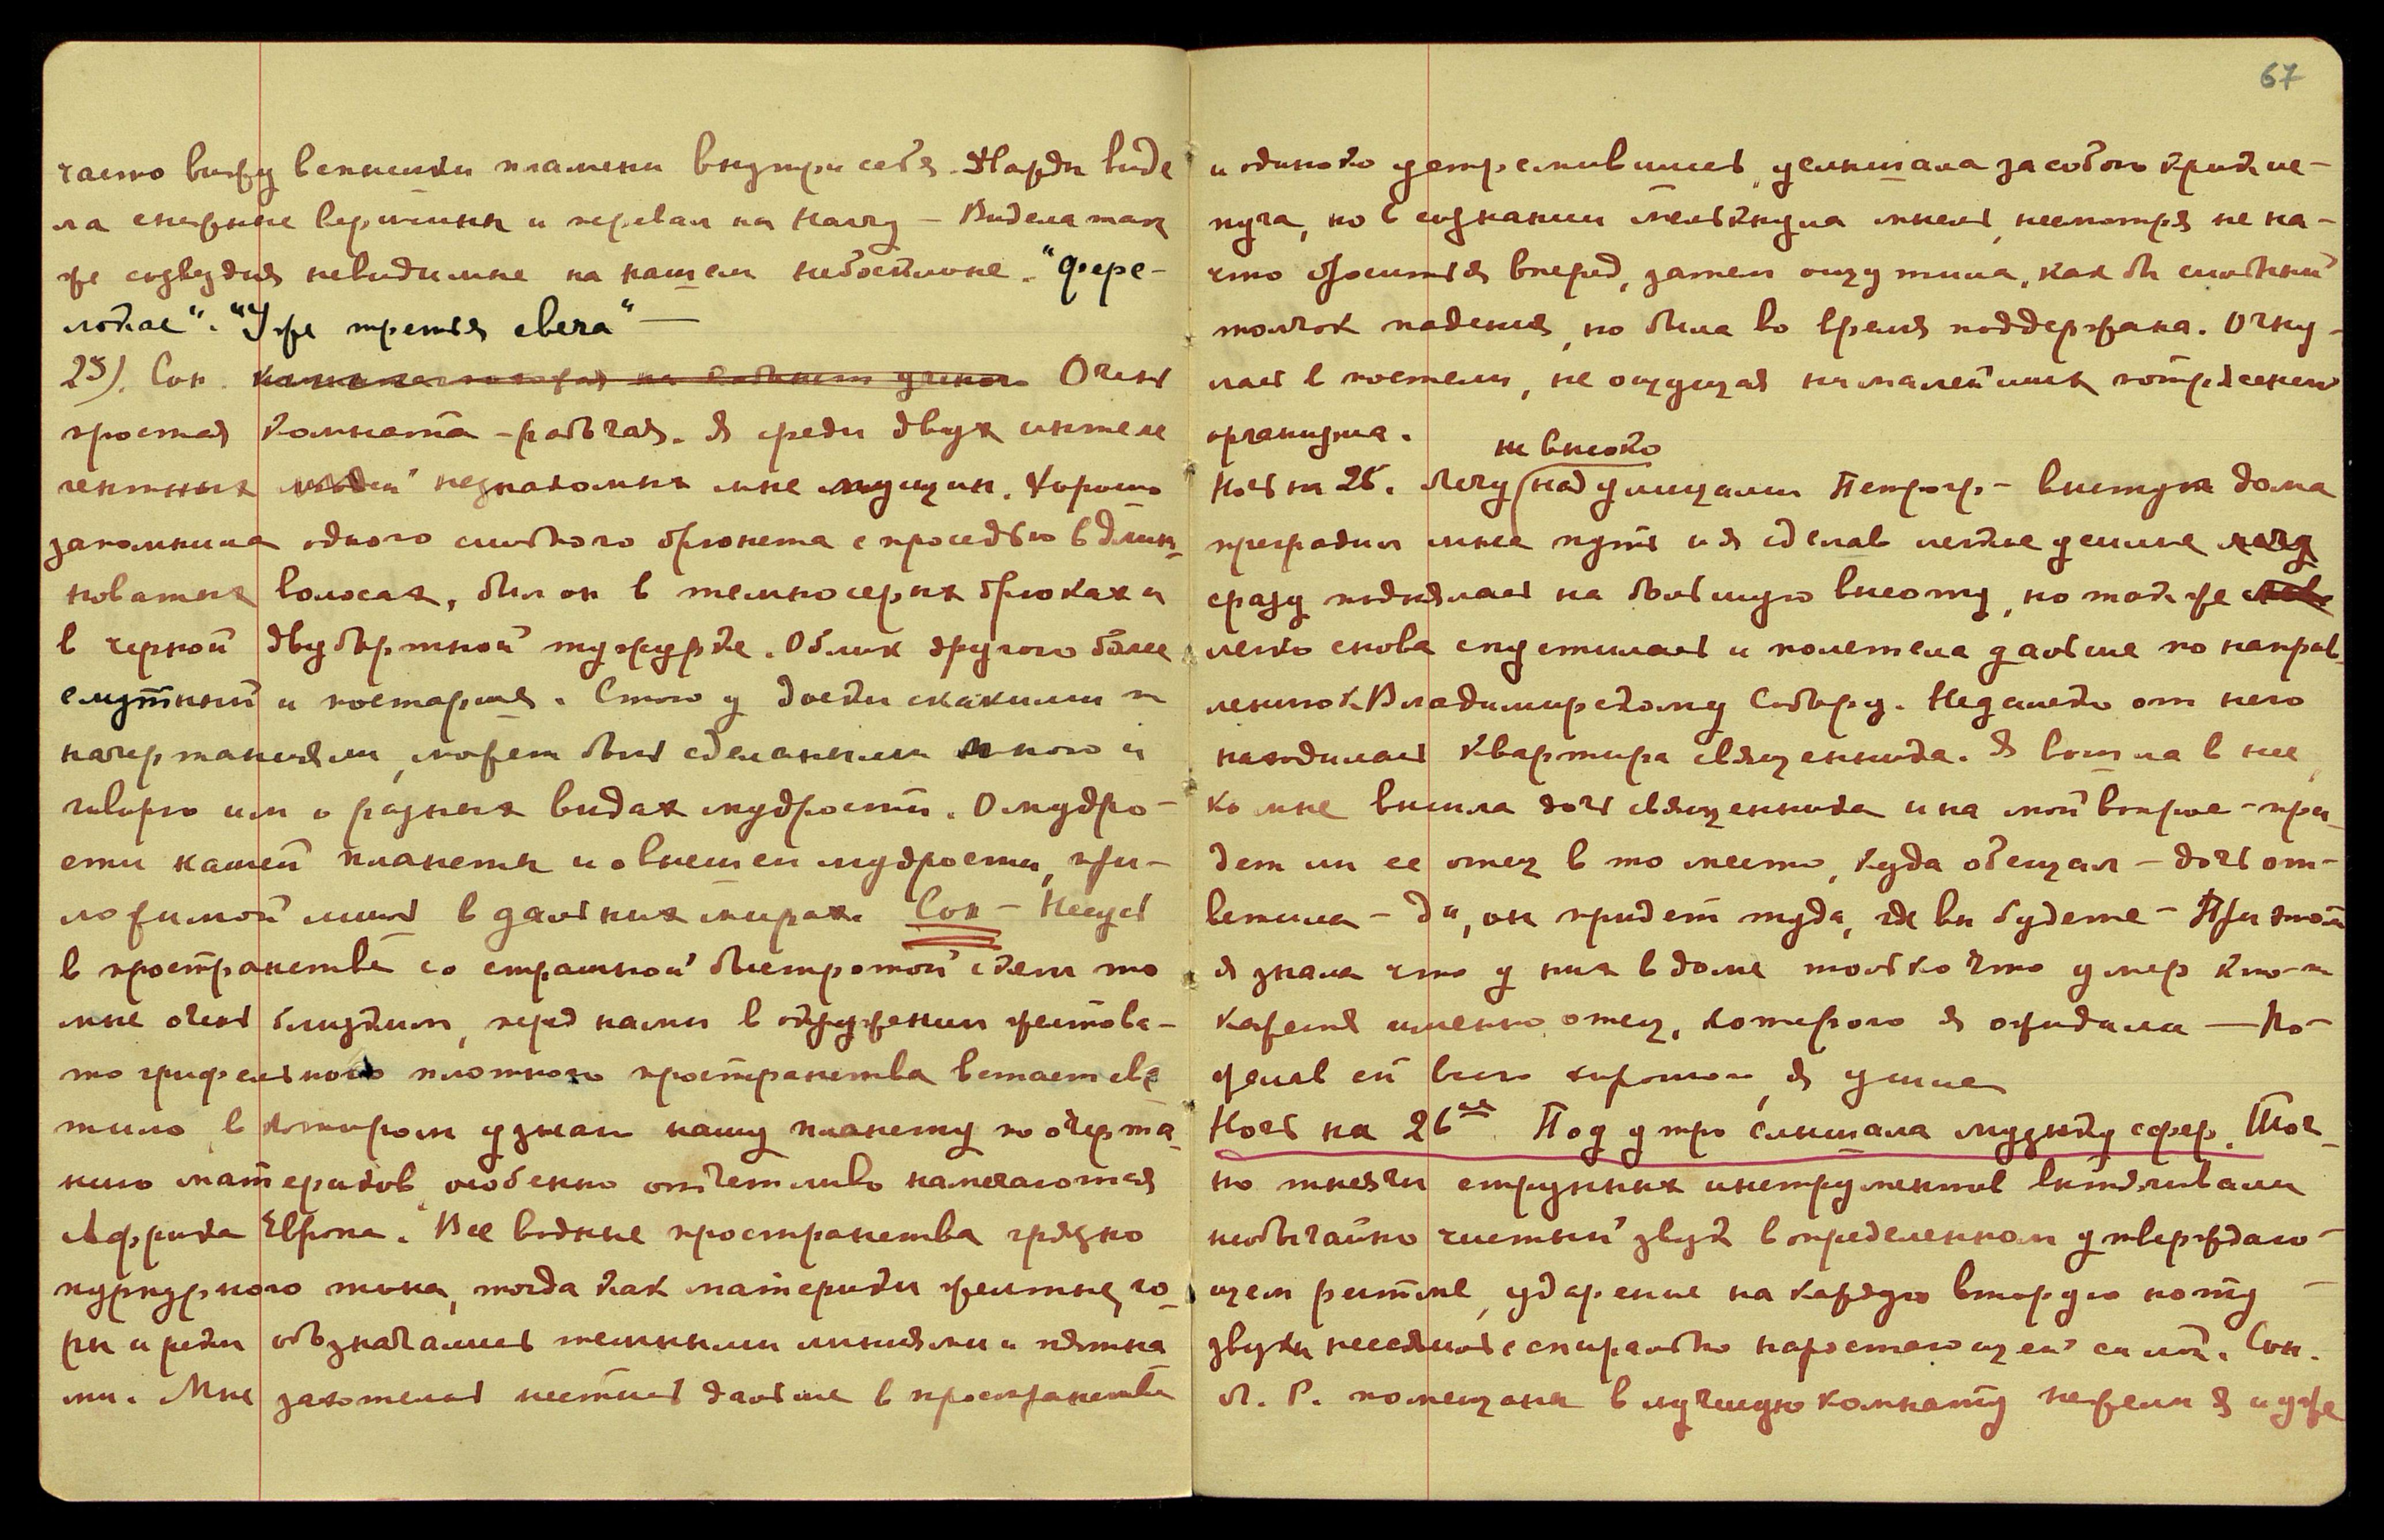 часто вижу вспышки пламени внутри себя. Нарди виде
ла снежные вершины и перевал на Наггу — Видела так
же созвездия невидимые на нашем небосклоне. "Фере-
локас". "Уже третья свеча" —
25). Сон. Очень
простая комната - рабочая. Я среди двух интеле
гентных незнакомых мне мущин. Хорошо
запомнила одного смуглого брюнета с проседью в длин-
новатых волосах, был он в темносерых брюках и
в черной двубортной тужурке. Облик другого более
смутный и постарше. Стою у доски с какими то
начертаниями, может быть сделанными мною и
говорю им о разных видах мудрости. О мудро-
сти нашей планеты и о высшей мудрости, при-
ложимой лишь в дальних мирах. Сон — Несусь
в пространстве со страшной быстротой с кем то
мне очень близким, перед нами в окружении желтова-
то грифельного плотного пространства встает све
тило, в котором узнаю нашу планету по очерта-
нию материков, особенно отчетливо намечаются
Африка Европа. Все водные пространства грязно
пурпурного тона, тогда как материки желтые, го-
ры и реки обозначались темными линиями и пятна
ми. Мне захотелось нестись дальше в пространство
67
и одиноко устремившись, услышала за собою крик ис-
пуга, но в сознании мелькнула мысль, несмотря не на-
что броситься вперед, затем ощутила, как бы сильный
толчок падения, но была во время поддержана. Очну-
лась в постели, не ощущая ни малейших потрясений
организма.
не высоко
Ночь на 25. Лечу над улицами Петрогр. — выступ дома
преградил мне путь и я сделав легкое усилие
сразу поднялась на большую высоту, но также
легко снова спустилась и полетела дальше по направ-
лению к Владимирскому Собору. Недалеко от него
находилась квартира священника. Я вошла в нее,
ко мне вышла дочь священника и на мой вопрос — при-
дет ли ее отец в то место, куда обещал — дочь от-
ветила — да, он придет туда, где вы будете — При этом
я знала что у них в доме только что умер кто-то
кажется именно отец, которого я ожидала — По-
желав ей всего хорошего, я ушла
Ночь на 26ое Под утро слышала музыку сфер. Точ-
но тысячи струнных инструментов выводили
необычайно чистый звук в определенном утверждаю-
щем ритме, ударение на каждую вторую ноту —
звуки неслись с спирально наростающей силой. Сон.
Л. Р. помещена в лучшую комнату нежели я и уже